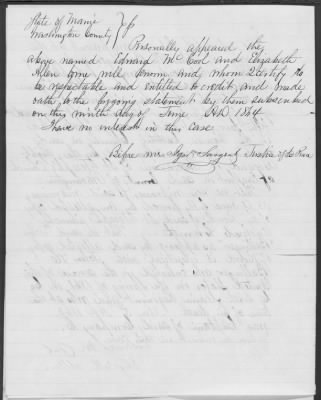 State of Maine
Washington County } ss
Personally appeared the
above named Edward Mc Cool and Elizabeth
Allen to me well known and whom I certify to
be respectable and entitled to credit, and made
oath to the forgoing statement by them subscribed
on this ninth day of June A.D. 1864
I have no interest in this case
Before me Sargent Justice of the Peace